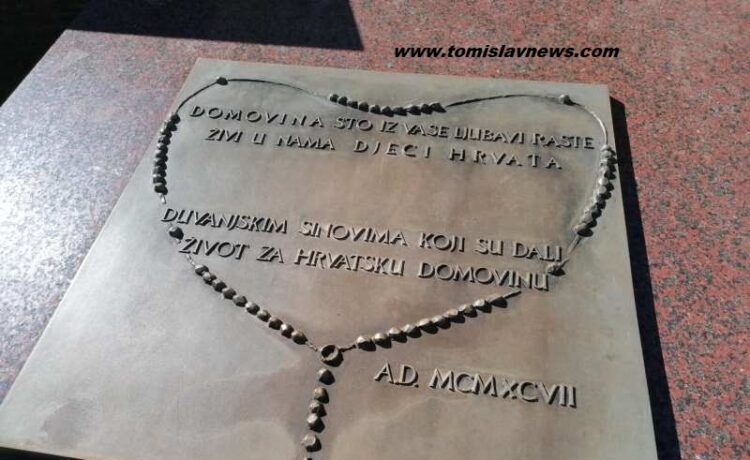 www.tomislavnews.com
DOMOVINA STO IZ VASE LJUBAVI RASTE
ŽIVI U NAMA DJECI HRVATA
DUVANJSKIM SINOVIMA KOJI SU DALI
ŽIVOT ZA HRVATSKU DOMOVINU
A.D. MCMXCVII